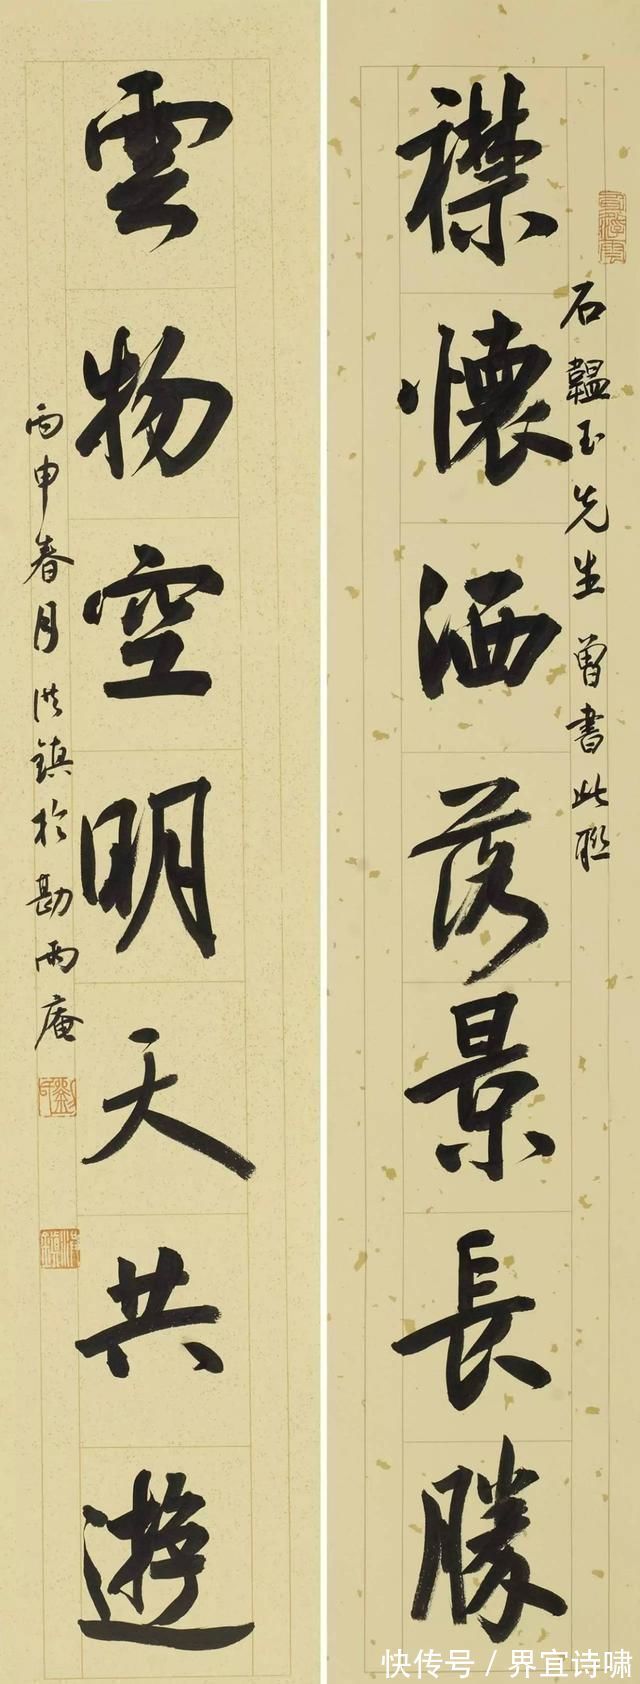 襟懷洒落景長勝
石韞玉先生曽書此聯
雲物空明天共遊
丙申春月洪鎮於勘雨庵
快传号／界宜诗啸